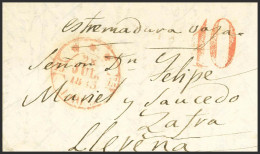 Estremadura baja.
10
Señor Dn Felipe
Mariel y Saucedo
Zafra
Llerena